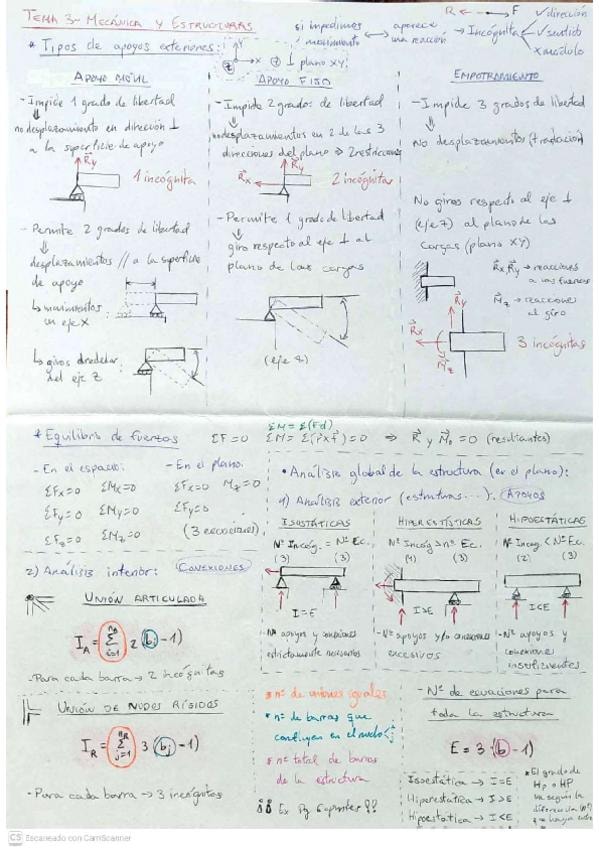 TEMA 3 - MECÁNICA Y ESTRUCTURAS
R ← → F ✓ dirección
si impedimos movimiento ↔ aparece una reacción → Incógnita
✓ sentido
x módulo
* Tipos de apoyos exteriores:
y
x
z
⊥ plano XY
APOYO MÓVIL
- Impide 1 grado de libertad
⇓
no desplazamiento en dirección ⊥
a la superficie de apoyo
Ry
1 incógnita
- Permite 2 grados de libertad
⇓
desplazamientos // a la superficie
de apoyo
↳ movimientos
en eje X
↳ giros alrededor
del eje Z
APOYO FIJO
- Impide 2 grados de libertad
⇓
no desplazamientos en 2 de las 3
direcciones del plano → 2 restricciones
Rx
Ry
2 incógnitas
- Permite 1 grado de libertad
⇓
giro respecto al eje ⊥ al
plano de las cargas
(eje z)
EMPOTRAMIENTO
- Impide 3 grados de libertad
⇓
No desplazamientos (traslación)
No giros respecto al eje ⊥
(eje z) al plano de las
cargas (plano XY)
Rx, Ry → reacciones
a las fuerzas
Mz → reacciones
al giro
Ry
Rx
Mz
3 incógnitas
* Equilibrio de fuerzas
ΣF = 0
ΣM = Σ(Fd)
ΣM = Σ(r×F) = 0 ⇒ R y M₀ = 0 (resultantes)
- En el espacio:
ΣFx=0 ΣMx=0
ΣFy=0 ΣMy=0
ΣFz=0 ΣMz=0
- En el plano:
ΣFx=0 Mz=0
ΣFy=0
(3 ecuaciones)
• Análisis global de la estructura (en el plano):
1) Análisis exterior (estructuras...): APOYOS
ISOSTÁTICAS
Nº Incóg. = Nº Ec.
(3) (3)
I=E
- Nº apoyos y conexiones
estrictamente necesarios
HIPERESTÁTICAS
Nº Incóg > nº Ec.
(4) (3)
I>E
- Nº apoyos y/o conexiones
excesivos
HIPOESTÁTICAS
Nº Incog < Nº Ec.
(2) (3)
I<E
- Nº apoyos y
conexiones
insuficientes
2) Análisis interior: CONEXIONES
UNIÓN ARTICULADA
I_A = Σ_{i=1}^{n_A} 2 (b_i - 1)
- Para cada barra → 2 incógnitas
UNIÓN DE NUDOS RÍGIDOS
I_R = Σ_{j=1}^{n_R} 3 (b_j - 1)
- Para cada barra → 3 incógnitas
* nº de uniones iguales
* nº de barras que
confluyen en el nudo
* nº total de barras
de la estructura
- Nº de ecuaciones para
toda la estructura
E = 3·(b - 1)
Isoestática → I=E
Hiperestática → I>E
Hipoestática → I<E
* El grado de
Hp o HP
diferencia
CS Escaneado con CamScanner